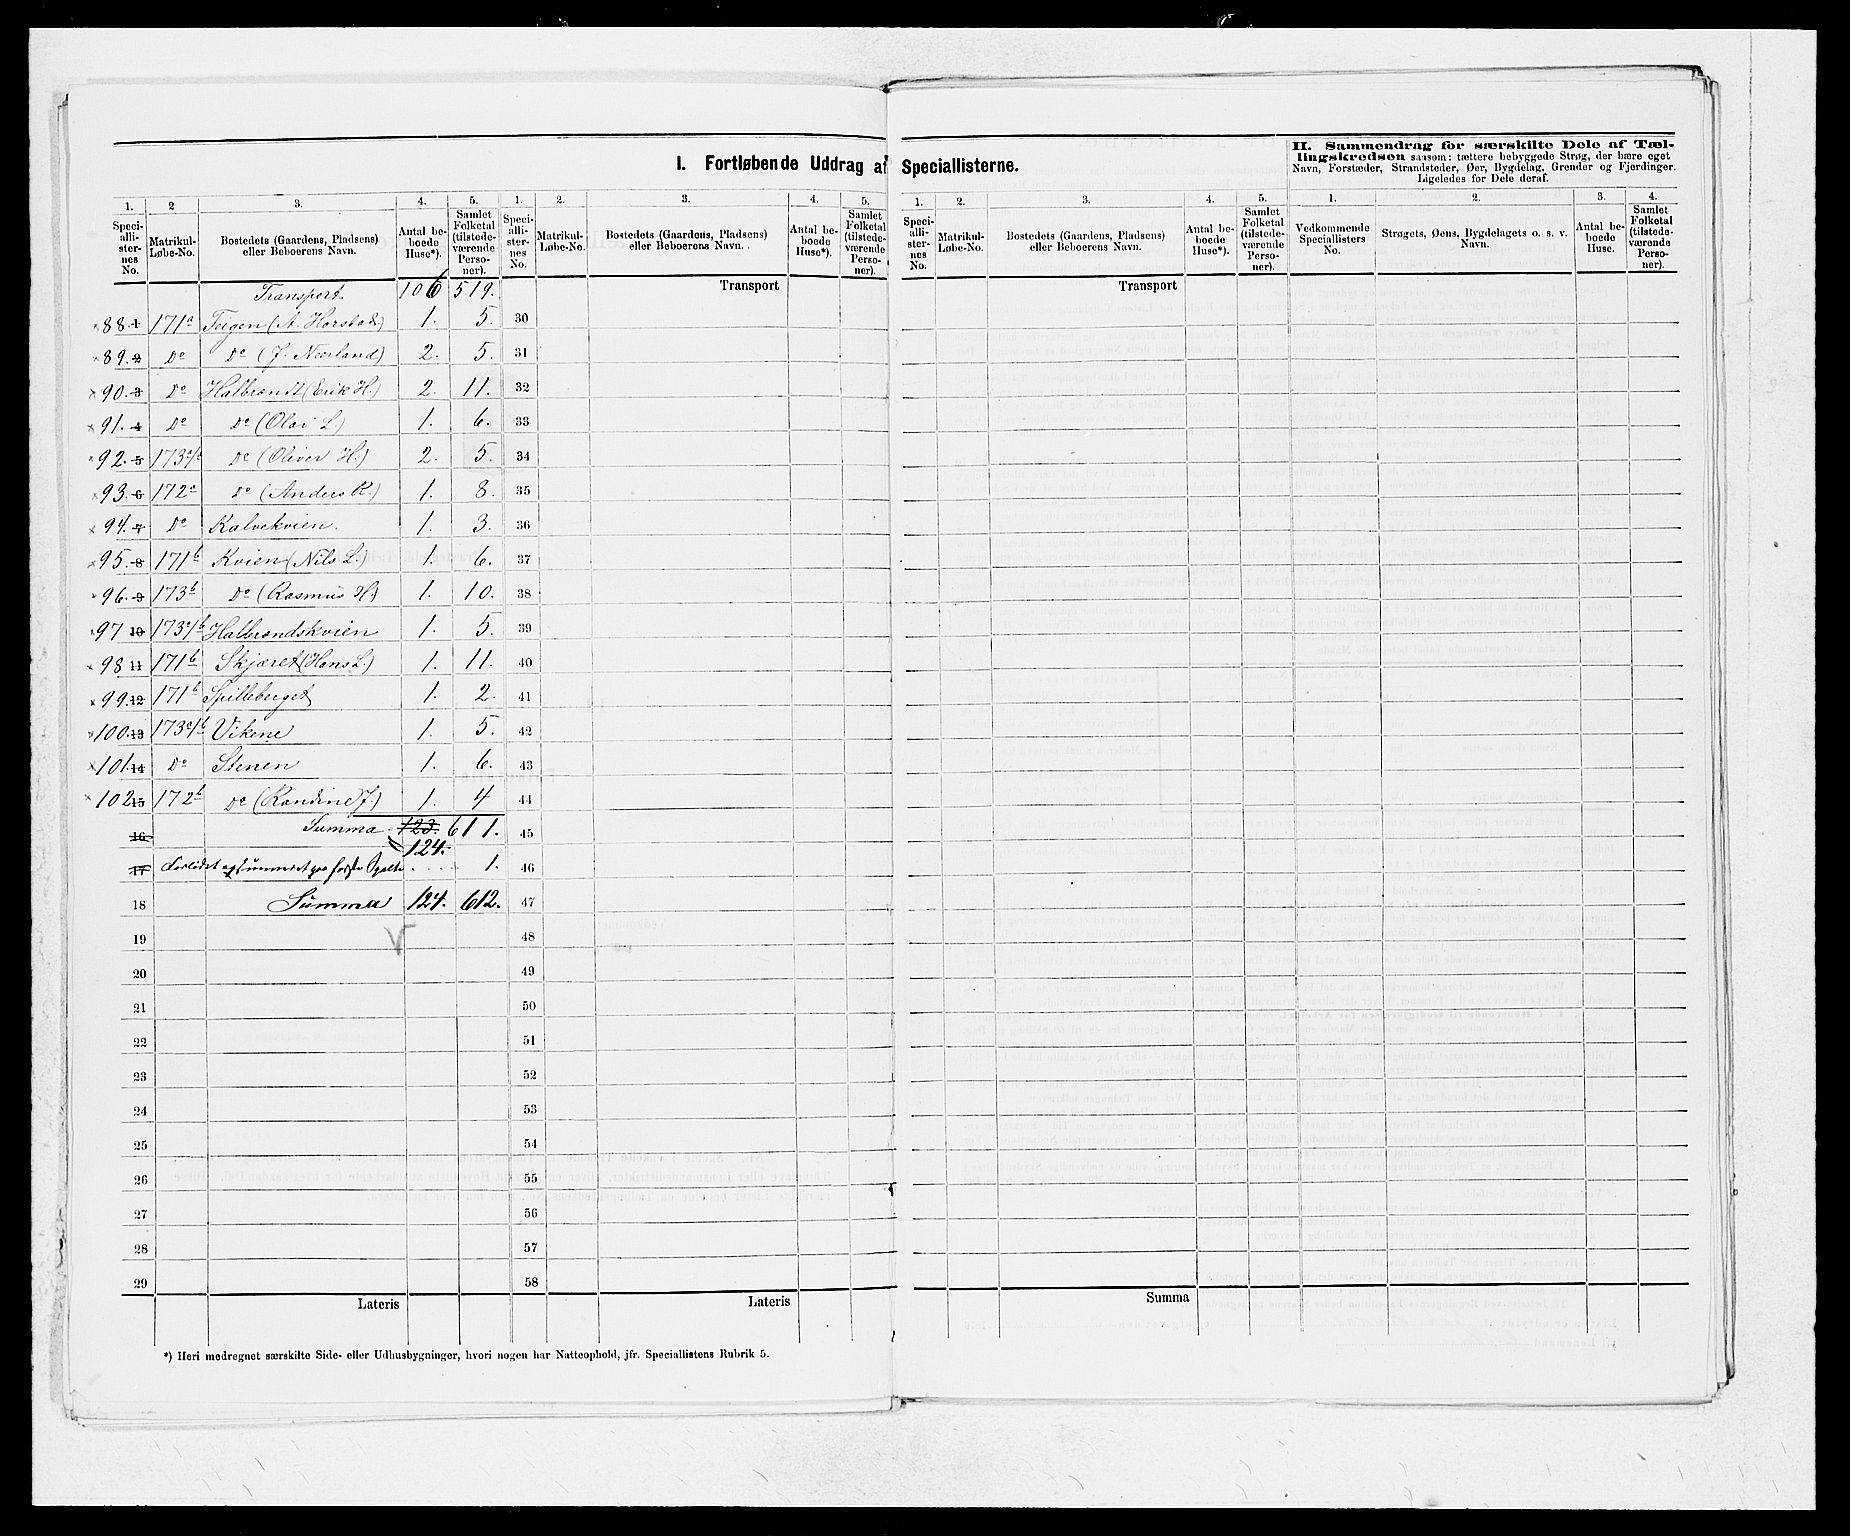 I. Fortløbende Uddrag af Speciallisterne.
II. Sammendrag for særskilte Dele af Tællingskredsen saasom: tættere bebyggede Strøg, der bære eget
Navn, Forstæder, Strandsteder, Øer, Bygdelag, Grender og Fjerdinger.
Ligeledes for Dele deraf.
1. 2 3. 4. 5. 1. 2. 3. 4. 5. 1. 2. 3. 4. 5. 1. 2. 3. 4.
Speciallisternes No. Matrikul-Løbe-No. Bostedets (Gaardens, Pladsens) eller Beboerens Navn. Antal beboede Huse*). Samlet Folketal (tilstedeværende Personer).
Speciallisternes No. Matrikul-Løbe-No. Bostedets (Gaardens, Pladsens) eller Beboerens Navn. Antal beboede Huse*). Samlet Folketal (tilstedeværende Personer).
Speciallisternes No. Matrikul-Løbe-No. Bostedets (Gaardens, Pladsens) eller Beboerens Navn. Antal beboede Huse*). Samlet Folketal (tilstedeværende Personer).
Vedkommende Speciallisters No. Strøgets, Øens, Bygdelagets o. s. v. Navn. Antal beboede Huse. Samlet Folketal (tilstedeværende Personer).
Transport 106 519. Transport Transport
88. 1 171a Teigen (A. Horstad.) 1. 5. 30
89. 2 Do Do (J. Neerland) 2. 5. 31
90. 3 Do Halbrendt (Erik H.) 2. 11. 32
91. 4 Do Do (Olai L) 1. 6. 33
92. 5 173a/b Do (Oliver H.) 2. 5. 34
93. 6 172a Do (Anders R.) 1. 8. 35
94. 7 Do Kalvekvien. 1. 3. 36
95. 8 171b Kvien (Nils L.) 1. 6. 37
96. 9 173b Do (Rasmus H.) 1. 10. 38
97 10 173a/b Halbrendskvien 1. 5. 39
98 11 171b Skjæret (Hans L.) 1. 11. 40
99. 12 171b Spilleberget 1. 2. 41
100. 13 173a/b Vikene 1. 5. 42
101. 14 Do Stenen 1. 6. 43
102 15 172b Do (Randine J.) 1. 4 44
16 Summa 123. 611. 45
124.
17 1. 46
18 Summa 124. 612. 47
19 48
20 49
21 50
22 51
23 52
24 53
25 54
26 55
27 56
28 57
29 58
Lateris Lateris Summa
*) Heri medregnet særskilte Side- eller Udhusbygninger, hvori nogen har Natteophold, jfr. Speciallistens Rubrik 5.